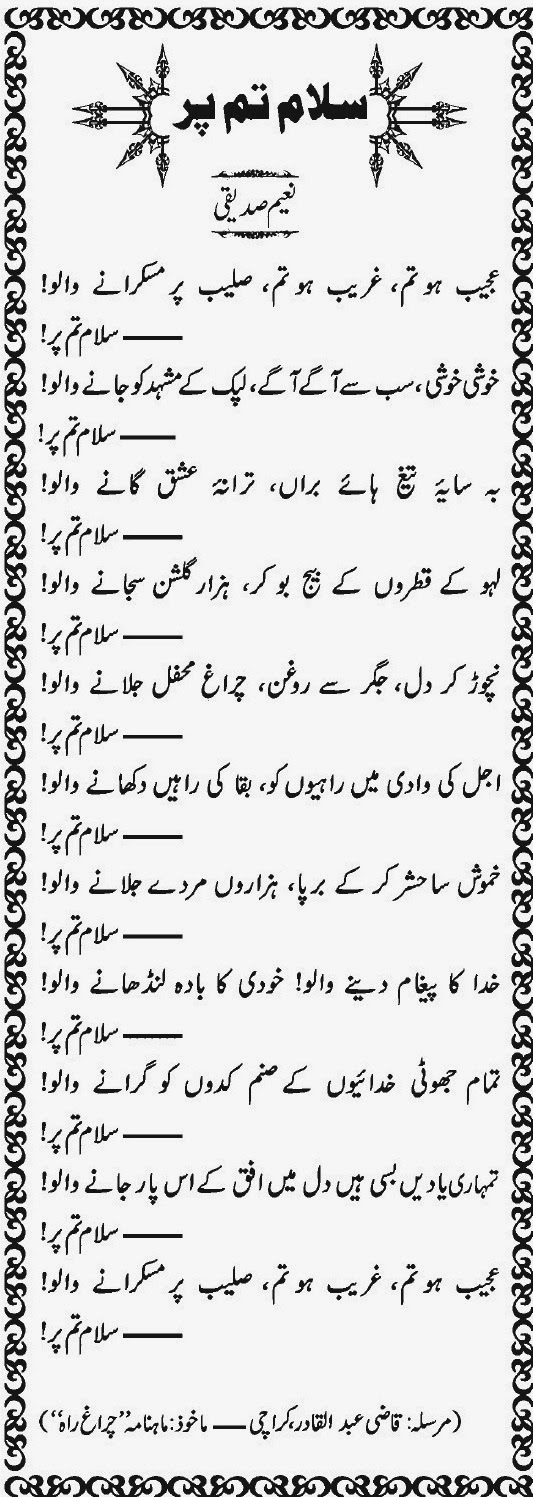 سلام تم پر
نعیم صدیقی
عجیب ہو تم، غریب ہو تم، صلیب پر مسکرانے والو!
—— سلام تم پر!
خوشی خوشی، سب سے آگے آگے، لپک کے مشہد کو جانے والو!
—— سلام تم پر!
بہ سایۂ تیغ ہائے براں، ترانۂ عشق گانے والو!
—— سلام تم پر!
لہو کے قطروں کے بیج بو کر، ہزار گلشن سجانے والو!
—— سلام تم پر!
نچوڑ کر دل، جگر سے روغن، چراغ محفل جلانے والو!
—— سلام تم پر!
اجل کی وادی میں راہیوں کو، بقا کی راہیں دکھانے والو!
—— سلام تم پر!
خموش سا حشر کر کے برپا، ہزاروں مردے جلانے والو!
—— سلام تم پر!
خدا کا پیغام دینے والو! خودی کا بادہ لنڈھانے والو!
—— سلام تم پر!
تمام جھوٹی خدائیوں کے صنم کدوں کو گرانے والو!
—— سلام تم پر!
تمہاری یادیں بسی ہیں دل میں افق کے اس پار جانے والو!
—— سلام تم پر!
عجیب ہو تم، غریب ہو تم، صلیب پر مسکرانے والو!
—— سلام تم پر!
(مرسلہ: قاضی عبد القادر، کراچی —— ماخوذ: ماہنامہ ’’چراغ راہ‘‘)